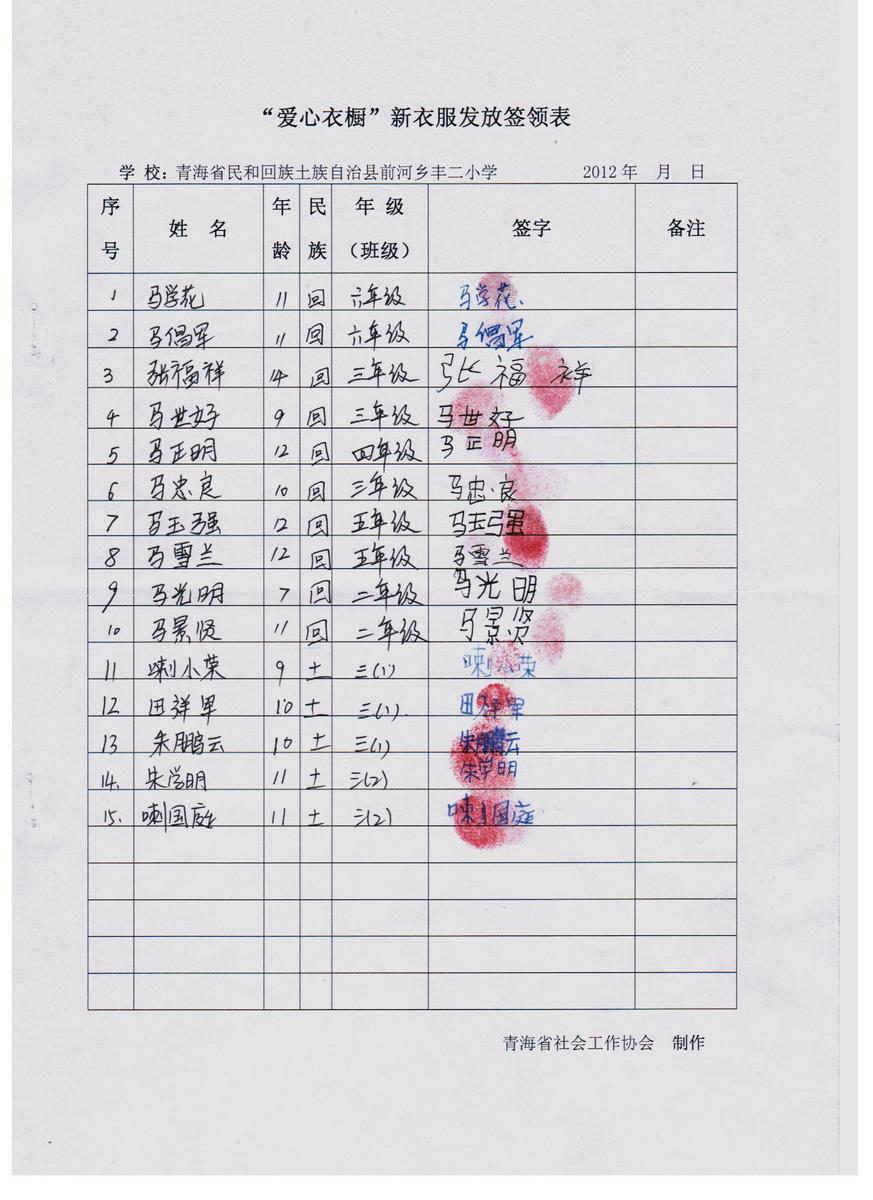 “爱心衣橱”新衣服发放签领表
学 校：青海省民和回族土族自治县前河乡丰二小学 2012年 月 日
序号 姓 名 年龄 民族 年 级（班级） 签字 备注
1 马学花 11 回 六年级 马学花
2 马倡军 11 回 六年级 马倡军
3 张福祥 14 回 三年级 张福祥
4 马世好 9 回 三年级 马世好
5 马正明 12 回 四年级 马正明
6 马忠良 10 回 三年级 马忠良
7 马玉强 12 回 五年级 马玉强
8 马雪兰 12 回 五年级 马雪兰
9 马光明 7 回 二年级 马光明
10 马景贤 11 回 二年级 马景贤
11 喇小荣 9 土 三(1) 喇小荣
12 田祥军 10 土 三(1). 田祥军
13 朱鹏云 10 土 三(1) 朱鹏云
14. 朱学明 11 土 三(2) 朱学明
15. 喇国庭 11 土 三(2) 喇国庭
青海省社会工作协会 制作